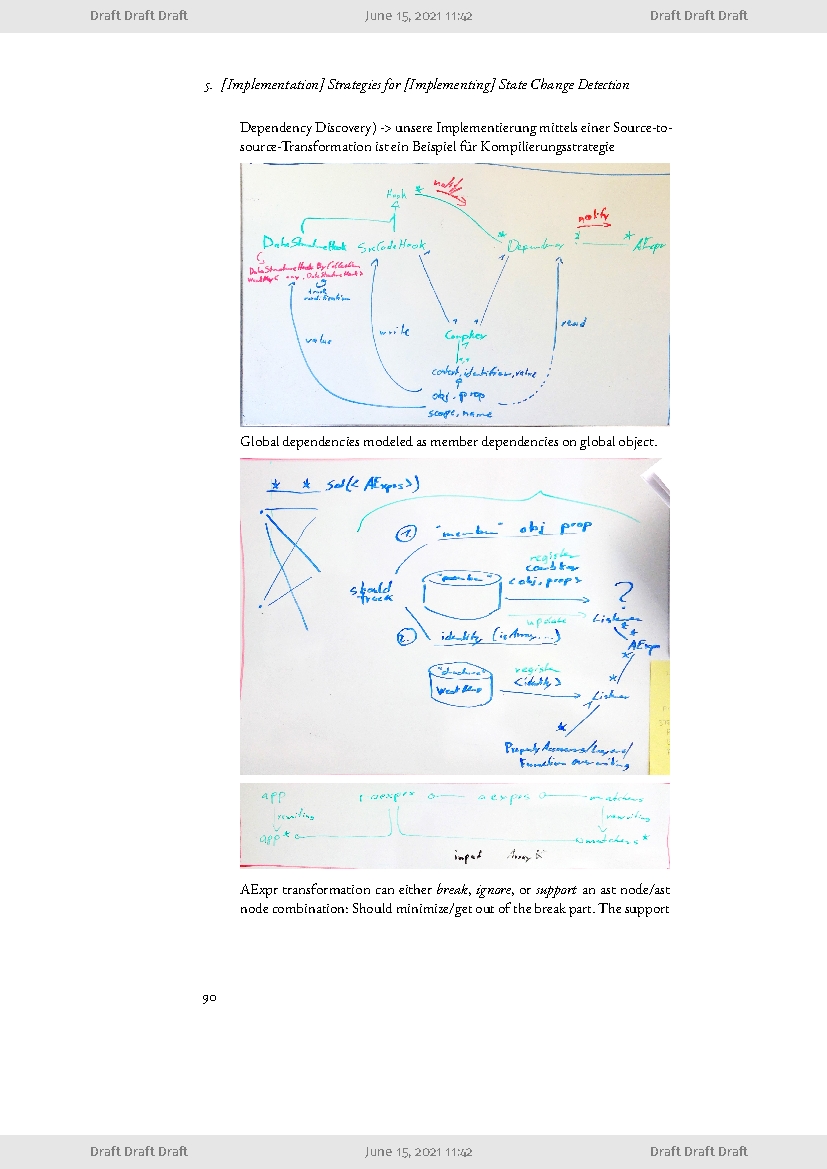 Draft Draft Draft June 15, 2021 11:42 Draft Draft Draft
5. [Implementation] Strategies for [Implementing] State Change Detection
Dependency Discovery) -> unsere Implementierung mittels einer Source-to-
source-Transformation ist ein Beispiel für Kompilierungsstrategie
Hook * notify
notify
DataStructureHook SrcCodeHook * Dependency * AExpr
value
write
read
Compker
context, identifier, value
obj, prop
scope, name
Global dependencies modeled as member dependencies on global object.
* * Set(<AExprs>)
1. "member" obj prop
register
"member" <obj, prop>
should
track
?
update
Listener
2. identity (isArray...)
AExpr
"structure" register
WeakMap <identity>
Listener
Property Accessors/Layers/
Function overwriting
app aexprs matchers
rewriting rewriting
app* matchers*
input Array
AExpr transformation can either break, ignore, or support an ast node/ast
node combination: Should minimize/get out of the break part. The support
90
Draft Draft Draft June 15, 2021 11:42 Draft Draft Draft